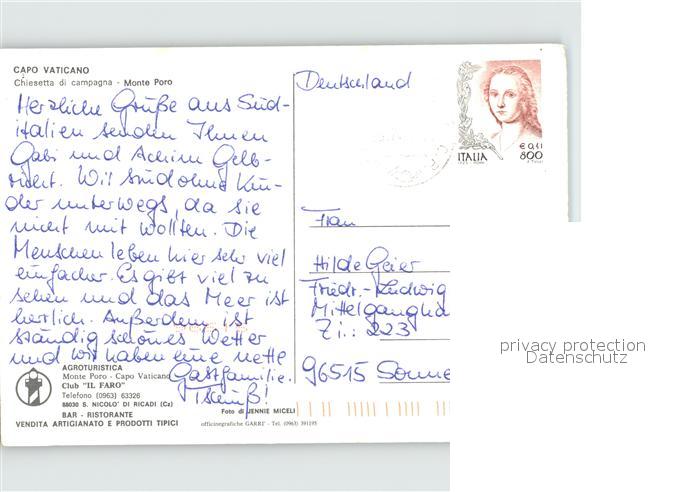 CAPO VATICANO
Chiesetta di campagna - Monte Poro
Herzliche Grüße aus Süd-
italien senden Ihnen
Gabi und Achim Gelb-
richt. Wir sind ohne Kin-
der unterwegs, da sie
nicht mit wollten. Die
Menschen leben hier sehr viel
einfacher. Es gibt viel zu
sehen und das Meer ist
herrlich. Außerdem ist
ständig schönes Wetter
und wir haben eine nette
Gastfamilie.
Tschüß!
AGROTURISTICA
Monte Poro - Capo Vaticano
Club "IL FARO"
Telefono (0963) 63326
88030 S. NICOLO' DI RICADI (Cz)
BAR - RISTORANTE
VENDITA ARTIGIANATO E PRODOTTI TIPICI
Foto di JENNIE MICELI
officinegrafiche GARRI' - Tel. (0963) 391195
Deutschland
€ 0,41
ITALIA 800
Frau
Hilde Geier
Friedr.-Ludwig
Mittelgangha
Zi.: 223
96515 Sonne
privacy protection
Datenschutz